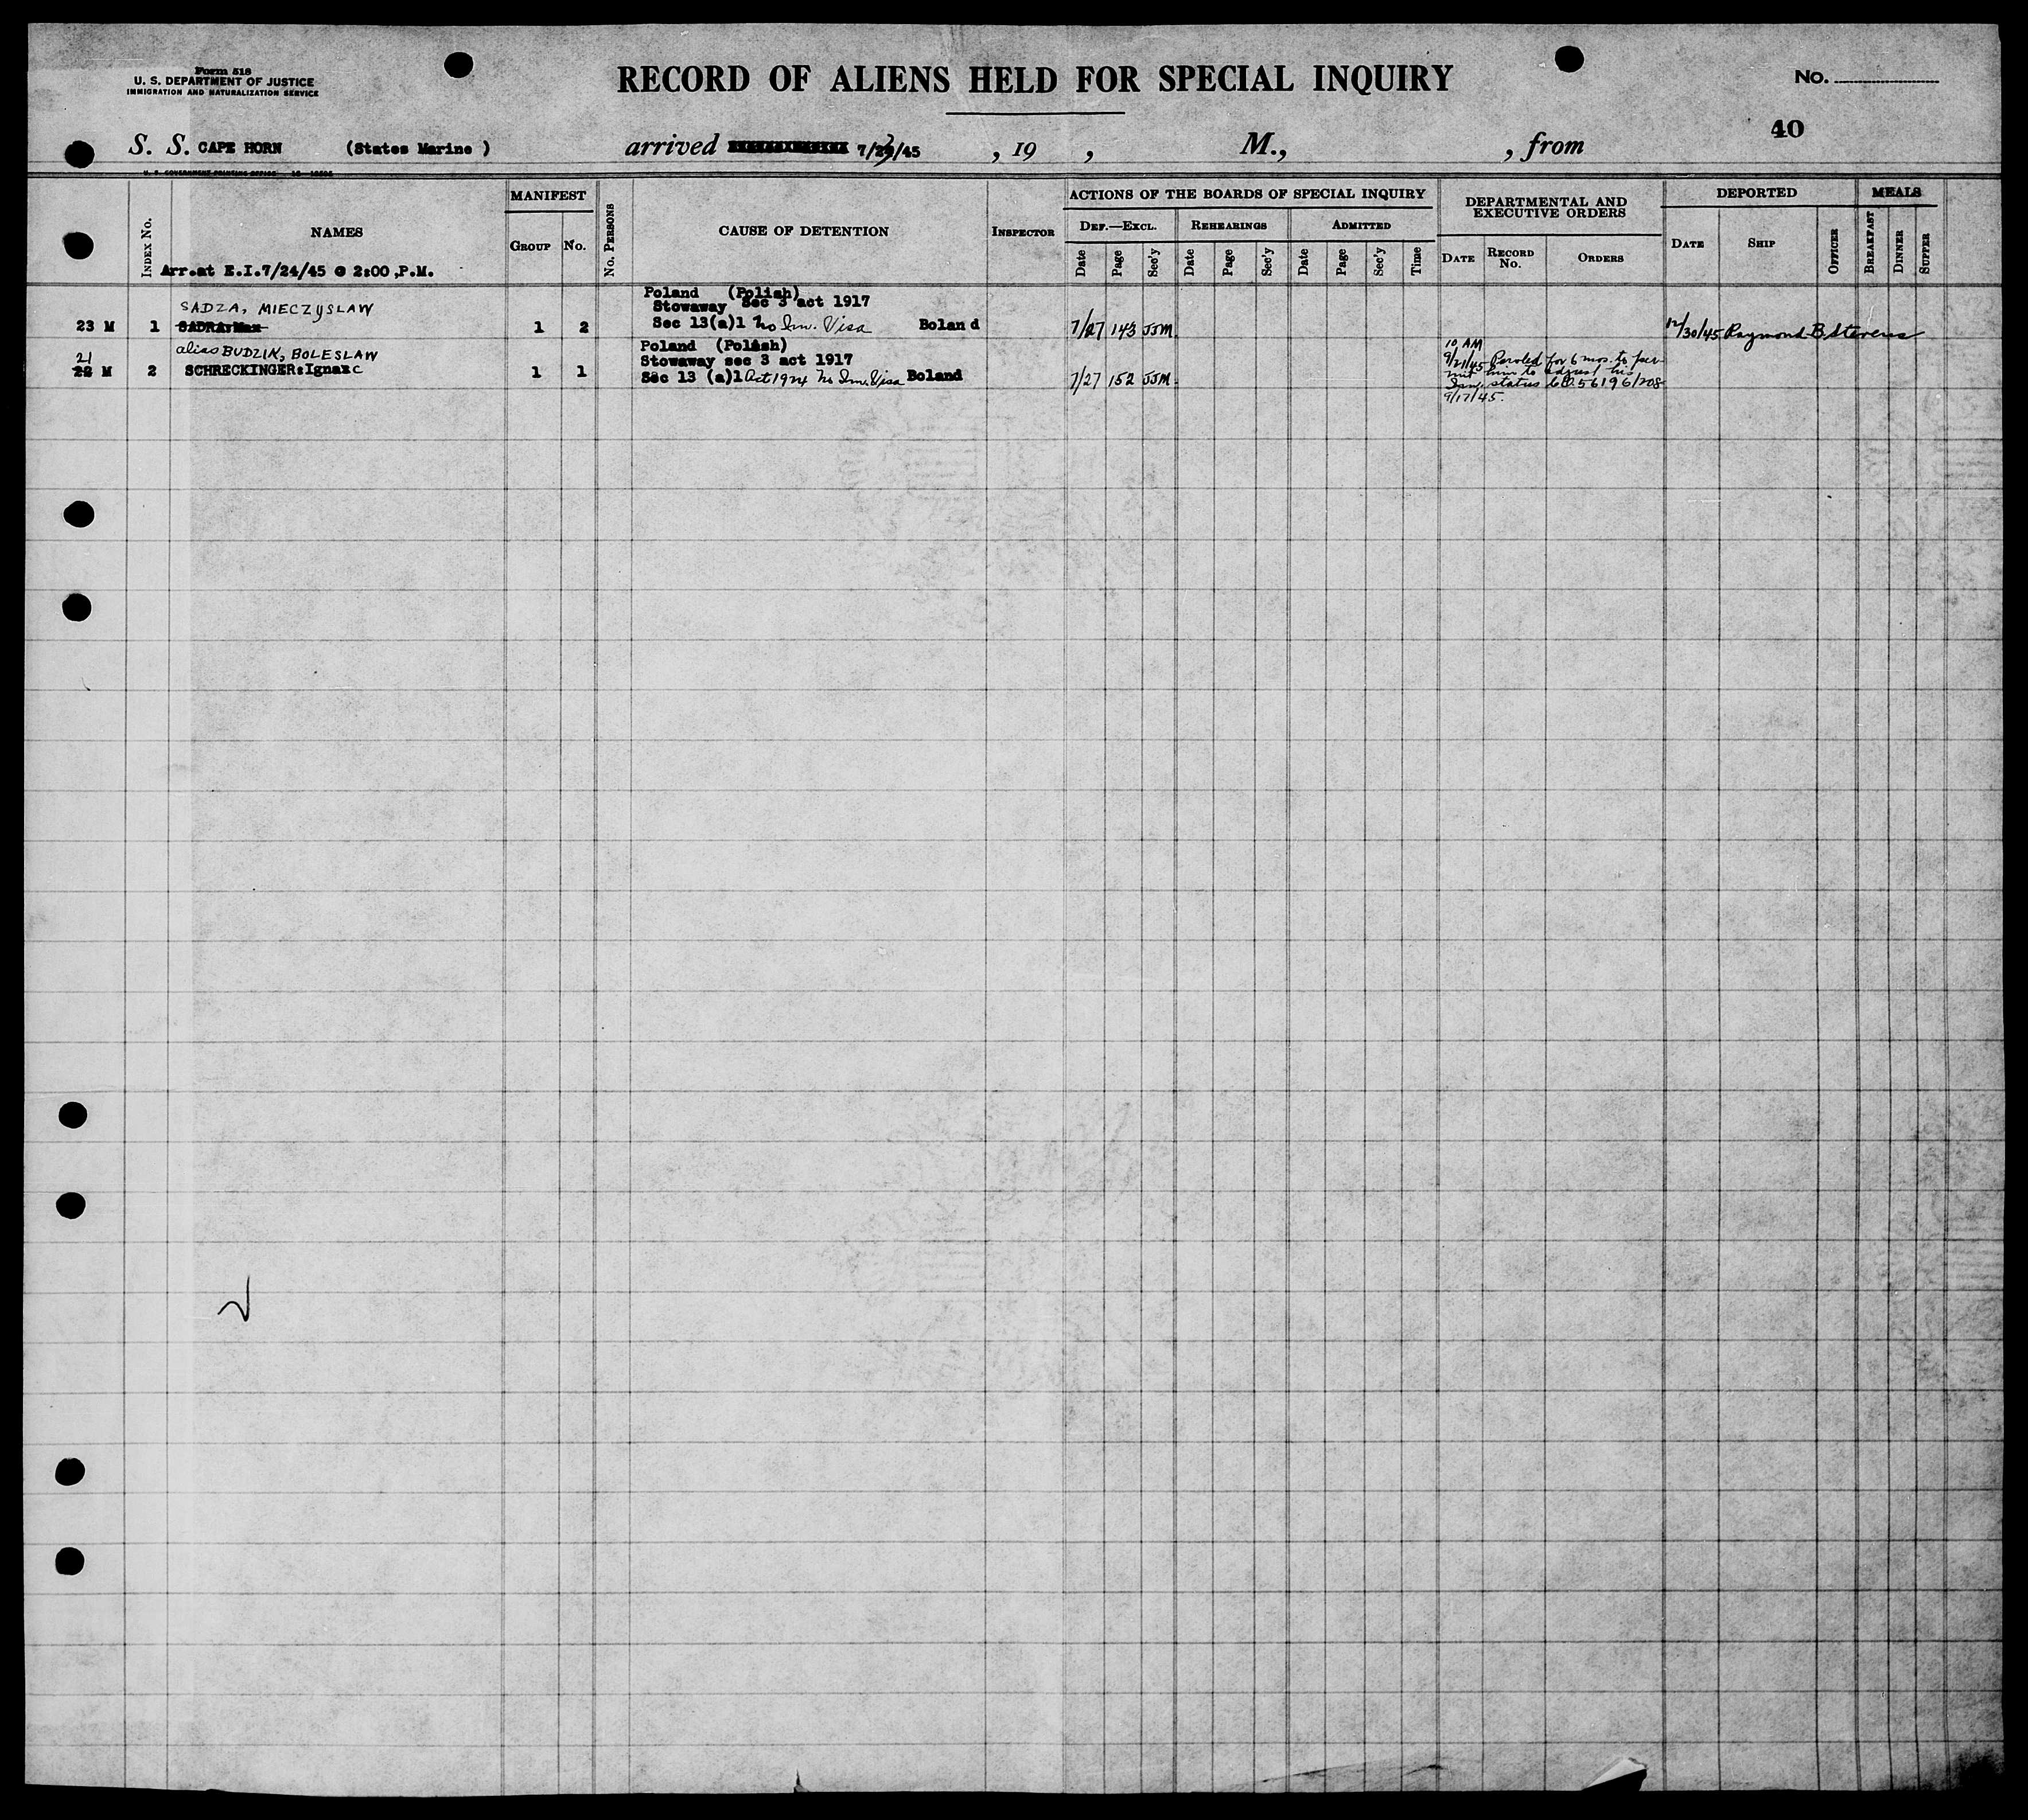 Form 518
U. S. DEPARTMENT OF JUSTICE
IMMIGRATION AND NATURALIZATION SERVICE
RECORD OF ALIENS HELD FOR SPECIAL INQUIRY
No.
40
S. S. CAPE HORN (States Marine ) arrived 7/23/45 , 19 , M., , from
U. S. GOVERNMENT PRINTING OFFICE
INDEX No.
NAMES
MANIFEST
GROUP No.
No. PERSONS
CAUSE OF DETENTION
INSPECTOR
ACTIONS OF THE BOARDS OF SPECIAL INQUIRY
DEF.—EXCL. REHEARINGS ADMITTED
Date Page Sec'y Date Page Sec'y Date Page Sec'y Time
DEPARTMENTAL AND
EXECUTIVE ORDERS
DATE RECORD No. ORDERS
DEPORTED
DATE SHIP OFFICER
MEALS
BREAKFAST DINNER SUPPER
Arr.at E.I.7/24/45 @ 2:00,P.M.
Poland (Polish)
SADZA, MIECZYSLAW Stowaway Sec 3 act 1917
23 M 1 SADRA:Max 1 2 Sec 13(a)1 No Im. Visa Bolan d 7/27 143 JJM 12/30/45 Raymond B Stevens
21 alias BUDZIK, BOLESLAW Poland (Polish) 10 AM
Stowaway sec 3 act 1917 9/21/45 Paroled for 6 mos. to per-
22 M 2 SCHRECKINGER:Ignazc 1 1 Sec 13 (a)1 Act 1924 No Im. Visa Boland 7/27 152 JJM. mit him to adjust his
Imm. status C.O. 56196/208
9/17/45.